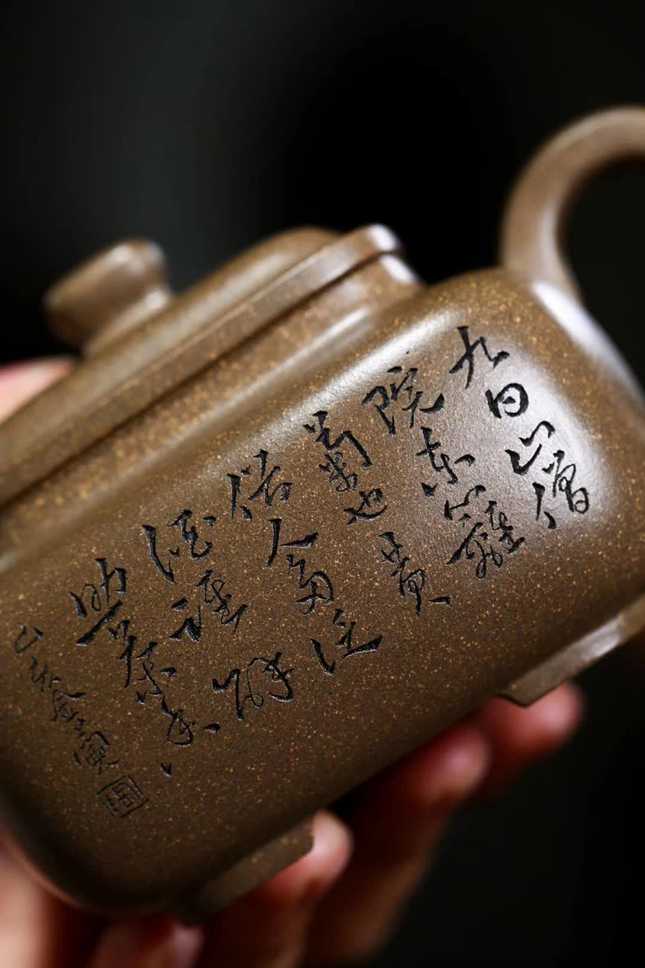 九日山僧
院东籬
菊也黄
俗人多泛
酒谁解
助茶香